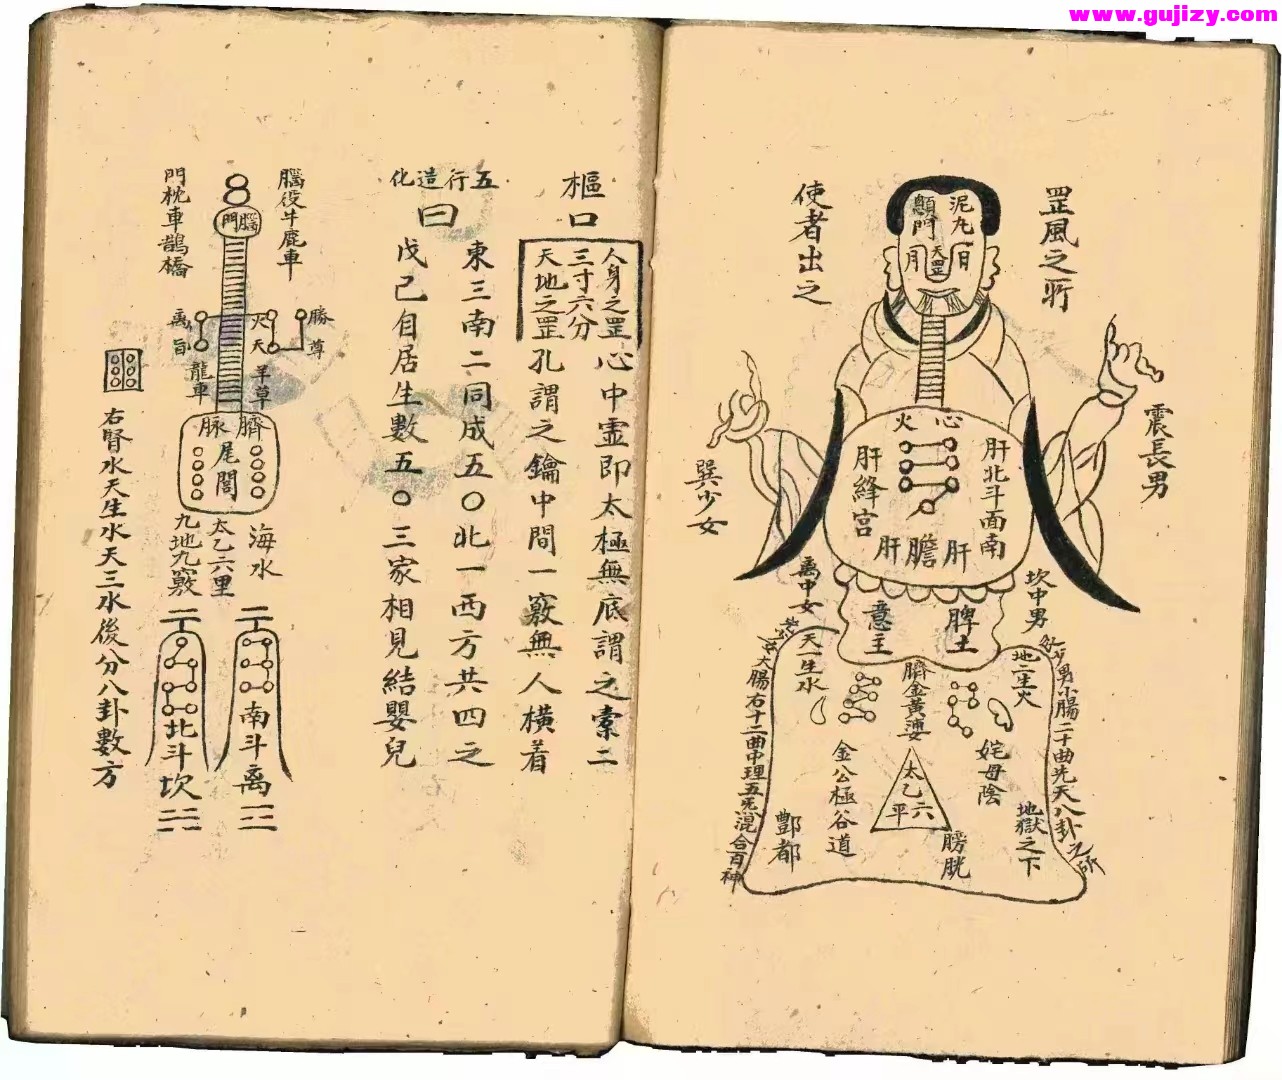 www.gujizy.com
罡風之所
使者出之
泥九
顖門
日
月
天罡
震長男
巽少女
心火
肝北斗面南
肝絳宮
肝膽肝
坎中男
离中女
脾土
意主
地二生火
天一生水
男小腸二十曲先天八卦之所
大腸右十二曲中理五炁混合百神
臍金黃婆
姹母陰
金公極谷道
太乙六平
地獄之下
酆都
膀胱
樞口
人身之罡
三寸六分
天地之罡
心中霊即太極無底謂之索二
孔謂之鑰中間一竅無人橫着
五行造化
曰
東三南二同成五〇北一西方共四之
戊己自居生數五〇三家相見結嬰兒
腦後牛鹿車
門枕車鵲橋
腦門
勝尊
龍車
羊草
臍脉
尾閭
海水
太乙六里
九地九竅
南斗离
北斗坎
右腎水天生水天三水後分八卦數方